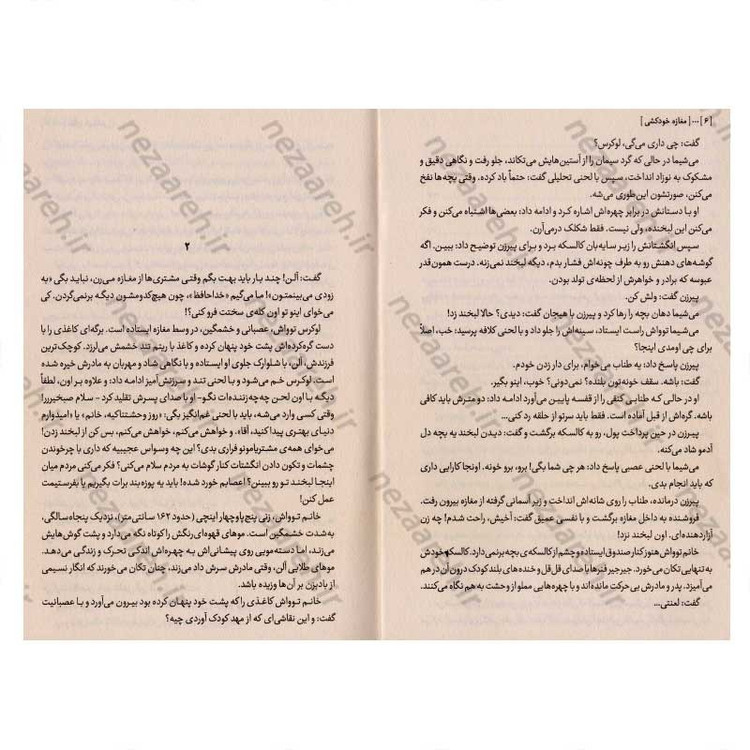 [ ۶ ] ... [ مغازه خودکشی ]
گفت: چی داری می‌گی، لوکرس؟
می‌شیما در حالی که گرد سیمان را از آستین‌هایش می‌تکاند، جلو رفت و نگاهی دقیق و
مشکوک به نوزاد انداخت، سپس با لحنی تحلیلی گفت: حتماً باد کرده. وقتی بچه‌ها نفخ
می‌کنن، صورتشون این‌طوری می‌شه.
او با دستانش در برابر چهره‌اش اشاره کرد و ادامه داد: بعضی‌ها اشتباه می‌کنن و فکر
می‌کنن این لبخنده، ولی نیست. فقط شکلک درمی‌آرن.
سپس انگشتانش را زیر سایه‌بان کالسکه برد و برای پیرزن توضیح داد: ببین. اگه
گوشه‌های دهنش رو به طرف چونه‌اش فشار بدم، دیگه لبخند نمی‌زنه. درست همون‌قدر
عبوسه که برادر و خواهرش از لحظه‌ی تولد بودن.
پیرزن گفت: ولش کن.
می‌شیما دهان بچه را رها کرد و پیرزن با هیجان گفت: دیدی؟ حالا لبخند زد!
می‌شیما توواش راست ایستاد، سینه‌اش را جلو داد و با لحنی کلافه پرسید: خب، اصلاً
برای چی اومدی اینجا؟
پیرزن پاسخ داد: یه طناب می‌خوام، برای دار زدن خودم.
گفت: باشه. سقف خونه‌تون بلنده؟ نمی‌دونی؟ خوب، اینو بگیر.
او در حالی که طنابی کنفی را از قفسه پایین می‌آورد ادامه داد: دو مترش باید کافی
باشه. گره‌اش از قبل آماده است. فقط باید سرتو از حلقه رد کنی...
پیرزن در حین پرداخت پول، رو به کالسکه برگشت و گفت: دیدن لبخند یه بچه دل
آدمو شاد می‌کنه.
می‌شیما با لحنی عصبی پاسخ داد: هر چی شما بگی! برو، برو خونه. اونجا کارایی داری
که باید انجام بدی.
پیرزن درمانده، طناب را روی شانه‌اش انداخت و زیر آسمانی گرفته از مغازه بیرون رفت.
فروشنده به داخل مغازه برگشت و با نفسی عمیق گفت: آخیش، راحت شدم! چه زن
آزاردهنده‌ای. اون لبخند نزد!
خانم توواش هنوز کنار صندوق ایستاده و چشم از کالسکه‌ی بچه برنمی‌دارد. کالسکه خودش
به تنهایی تکان می‌خورد. جیرجیر فنرها با صدای قل‌قل و خنده‌های بلند کودک درون آن در هم
می‌آمیزد. پدر و مادرش بی‌حرکت مانده‌اند و با چهره‌هایی مملو از وحشت به هم نگاه می‌کنند.
گفت: لعنتی...
۲
گفت: آلن! چند بار باید بهت بگم وقتی مشتری‌ها از مغازه می‌رن، نباید بگی «به
زودی می‌بینمتون»! ما می‌گیم «خداحافظ»، چون هیچ‌کدومشون دیگه برنمی‌گردن. کی
می‌خوای اینو تو اون کله‌ی سختت فرو کنی؟!
لوکرس توواش، عصبانی و خشمگین، در وسط مغازه ایستاده است. برگه‌ای کاغذی را با
دست گره‌کرده‌اش پشت خود پنهان کرده و کاغذ با ریتم تند خشمش می‌لرزد. کوچک‌ترین
فرزندش، آلن، با شلوارک جلوی او ایستاده و با نگاهی شاد و مهربان به مادرش خیره شده
است. لوکرس خم می‌شود و با لحنی تند و سرزنش‌آمیز ادامه داد: و علاوه بر اون، لطفاً
دیگه با اون لحن چه‌چه‌زننده‌ات نگو- او با صدای پسرش تقلید کرد - سلام صبخیررر!ا
وقتی کسی وارد می‌شه، باید با لحنی غم‌انگیز بگی: «روز وحشتناکیه، خانم» یا «امیدوارم
دنیای بهتری پیدا کنید، آقا»، و خواهش می‌کنم، خواهش می‌کنم، بس کن از لبخند زدن!
می‌خوای همه‌ی مشتریامونو فراری بدی؟ این چه وسواس عجیبیه که داری با چرخوندن
چشمات و تکون دادن انگشتات کنار گوشات به مردم سلام می‌کنی؟ فکر می‌کنی مردم میان
اینجا لبخند تو رو ببینن؟ اعصابم خورد شده! باید یه پوزه بند برات بگیریم یا بفرستیمت
عمل کنن!
خانم توواش، زنی پنج‌پاوچهار اینچی (حدود ۱۶۲ سانتی‌متر)، نزدیک پنجاه‌سالگی،
به‌شدت خشمگین است. موهای قهوه‌ای‌رنگش را کوتاه نگه می‌دارد و پشت گوش‌هایش
می‌زند، اما دسته‌مویی روی پیشانی‌اش به چهره‌اش اندکی تحرک و زندگی می‌دهد.
موهای طلایی آلن، وقتی مادرش سرش داد می‌زند، چنان تکان می‌خورند که انگار نسیمی
از بادبزن بر آن‌ها وزیده باشد.
خانم توواش کاغذی را که پشت خود پنهان کرده بود بیرون می‌آورد و با عصبانیت
گفت: و این نقاشی‌ای که از مهد کودک آوردی چیه؟
nezaareh.ir